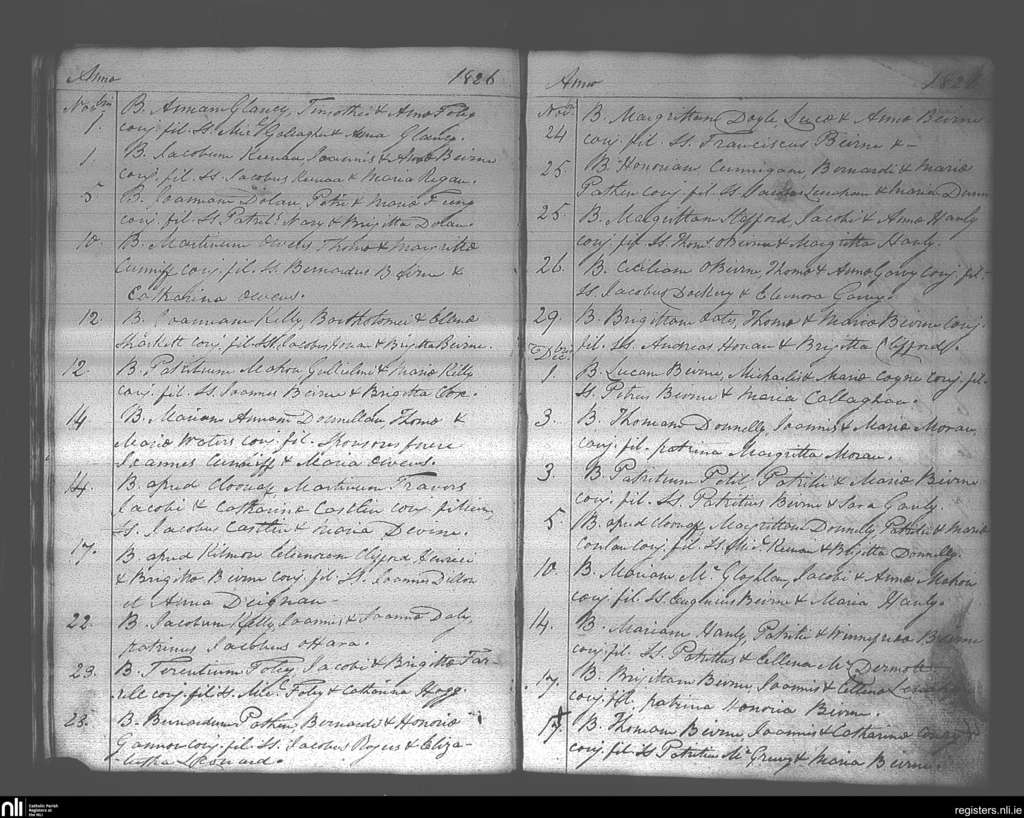 Anno 1826
Novbris
1. B. Annam Glancy, Timothei & Anna Foley
conj. fil. Ss. Mich Gallagher & Anna Glancy.
1 B. Jacobum Keenan, Joannis & Anna Beirne
conj. fil. Ss. Jacobus Keenan & Maria Regan.
5 B. Joannam Dolan, Petri & Maria
conj. fil. Ss. Patrs. Nary & Brigitta Dolan.
10. B. Martinum Owens, Thoma & Margritta
Cunniff conj. fil. Ss. Bernardus Beirne &
Catharina Owens.
12. B. Joannam Kelly, Bartholomei & Elena
conj. fil. Ss. Jacobus Honan & Brigitta Beirne.
12. B. Patritium Mahon Gulielmi & Maria Kelly
conj. fil. Ss. Joannes Beirne & Brigitta Cox.
14. B. Mariam Annam Donnellan, Thoma &
Maria Waters conj. fil. Sponsores fuere
Joannes Cunniff & Maria Owens.
14. B. apud Cloonaff Martinum Travers
Jacobi & Catharina Castlin conj. filium,
Ss. Jacobus Castlin & Maria Devine.
17. B. apud Kilmore Elenoram Clifford,
& Brigitta Beirne conj. fil. Ss. Joannes Dillon
et Anna Deignan
22. B. Jacobum Kelly, Joannis & Joanna Daly,
patrinus Jacobus OHara.
23. B. Terentium Foley, Jacobi & Brigitta Far-
rell conj. fil. Ss. Mich. Foley & Catharina Hogg.
23. B. Bernardum Patten, Bernardi & Honoria
Gannon conj. fil. Ss. Jacobus Rogers & Eliza-
betha Leonard.
Anno 1826
Nov.
24 B. Margrittam Doyle, Luca & Anna Beirne
conj. fil. Ss. Franciscus Beirne & -
25. B. Honoriam Cunnigam, Bernardi & Maria
Patten conj. fil. Ss. Lenahan & Maria
25. B. Margrittam Stafford, Jacobi & Anna Hanly
conj. fil. Ss. Thoms. OBeirne & Margritta Hanly.
26. B. Ceciliam OBeirne, Thoma & Anna Garry conj. fil.
Ss. Jacobus Dockery & Elenora Garry.
29. B. Brigittam Oates, Thoma & Maria Beirne conj.
fil. Ss. Andreas Honan & Brigitta Clifford.
Dec.
1. B. Lucam Beirne, Michaelis & Maria Coyne conj. fil.
Ss. Petrus Beirne & Maria Callaghan.
3. B. Thomam Donnelly, Joannis & Maria Moran,
conj. fil. patrina Margritta Moran.
3. B. Patritium Patritii & Maria Beirne
conj. fil. Ss. Patritius Beirne & Sara Ganly.
5. B. apud Cloonaff Margrittam Donnelly, Patritii & Maria
Conlan conj. fil. Ss. Mich. Keenan & Brigitta Donnelly.
10. B. Mariam Mc Gloghlan, Jacobi & Anna Mahon
conj. fil. Ss. Eugenius Beirne & Maria Hanly.
14. B. Mariam Hanly, Patritii & Beirne
conj. fil. Ss. Patritius & Ellena Mc Dermott
17. B. Brigittam Beirne, Joannis & Ellena
conj. fil. patrina Honoria Beirne.
17. B. Thomam Beirne, Joannis & Catharina
conj. fil. Ss. Patritius Mc Greevy & Maria Beirne.
nli Catholic Parish
Registers at
the NLI
registers.nli.ie